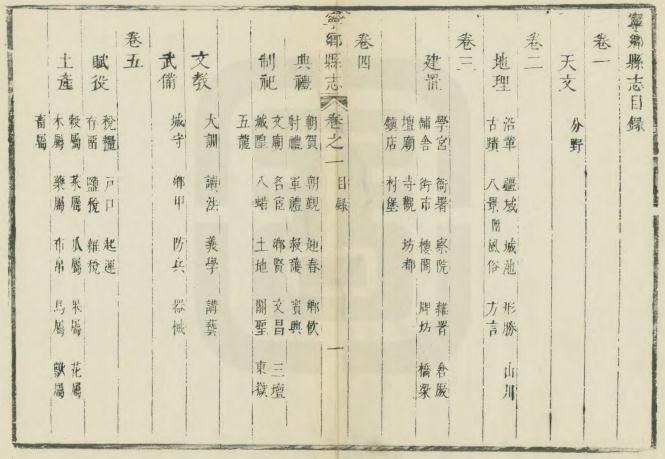 寧鄉縣志目錄
卷一
天文 分野
卷二
地理 沿革 疆域 城池 形勝 山川
古蹟 八景 附風俗 方言
卷三
建置 學宮 衙署 察院 雜署 倉廒
鋪舍 街市 樓閣 牌坊 橋梁
壇廟 寺觀 坊都
鎮店 村堡
卷四
寧鄉縣志 卷之一 目錄 一
典禮 朝賀 朝覲 迎春 鄉飲
射禮 軍禮 救護 賓興
文廟 名宦 鄉賢 文昌 三壇
制祀 城隍 八蜡 土地 關聖 東嶽
五龍
文教 大訓 讀法 義學 講藝
武備 城守 鄉甲 防兵 器械
卷五
賦役 稅糧 戶口 起運
存留 鹽稅 雜稅
土產 穀屬 菜屬 瓜屬 果屬 花屬
木屬 藥屬 布帛 馬屬 獸屬
畜屬